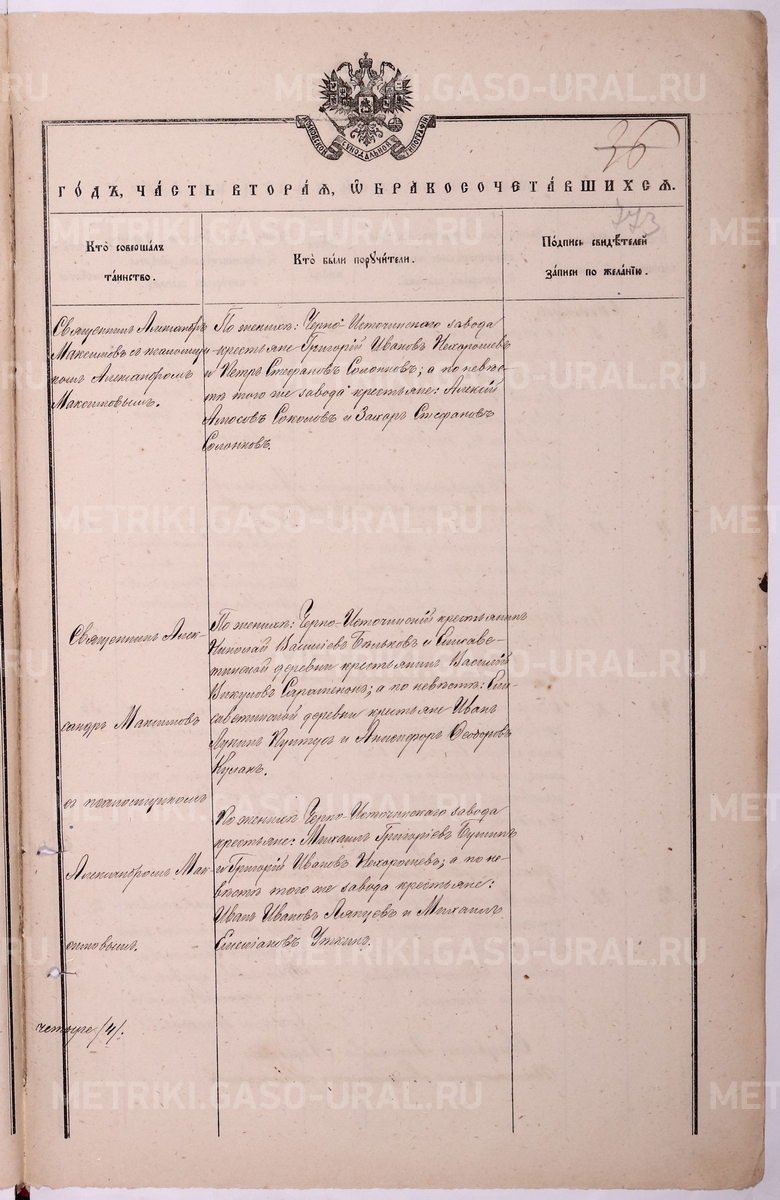 МОСКОВСКОЙ СѴНОДАЛЬНОЙ ТИПОГРАФІИ
36
ГО́ДЪ, ЧА́СТЬ ВТОРАѦ, Ѡ БРАКОСОЧЕТА́ВШИХСѦ.
373
Кто̀ совершалъ
та́инство.
Кто̀ бы́ли порꙋчи́тели.
По́дпись свидѣ́телей
за́писи по жела́нїю.
Священникъ Александръ
Максимовъ съ псаломщи-
комъ Александромъ
Макситовымъ.
По женихѣ: Черно-Источинскаго завода
крестьяне Григорій Ивановъ Нехорошевъ
и Петръ Стефановъ Солонковъ; а по невѣс-
тѣ того же завода крестьяне: Алексій
Амосовъ Соколовъ и Захаръ Стефановъ
Солонковъ.
Священникъ Алек-
сандръ Максимовъ
съ псаломщикомъ
Александромъ Мак-
ситовымъ.
По женихѣ: Черно-Источинскій крестьянинъ
Николай Васильевъ Баньковъ и Елисаве-
тинской деревни крестьянинъ Василій
Викуловъ; а по невѣстѣ: Ели-
саветинской деревни крестьяне Иванъ
и Анисифоръ Ѳеодоровъ
Куланъ.
По женихѣ Черно-Источинскаго завода
крестьяне: Михаилъ Григоріевъ
и Григорій Ивановъ Нехорошевъ; а по не-
вѣстѣ того же завода крестьяне:
Иванъ Ивановъ Ляпцевъ и Михаилъ
Уткинъ.
четыре /4/.
METRIKI.GASO-URAL.RU